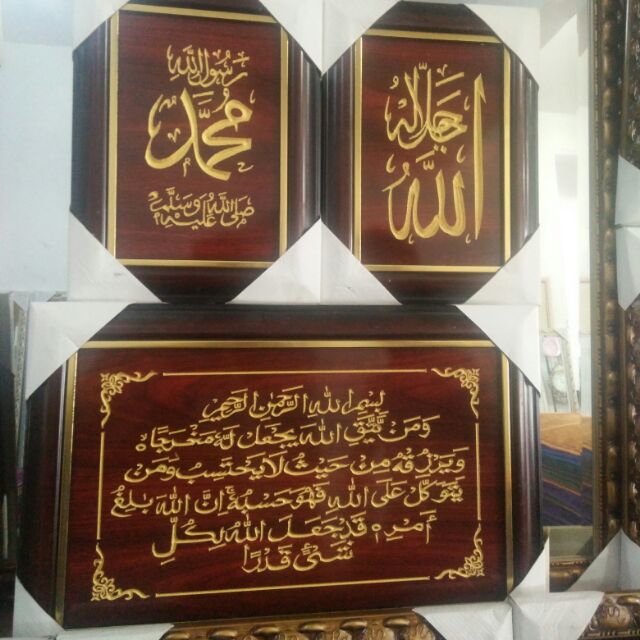 الله
جل جلاله
رسول الله
محمد
صلى الله عليه وسلم
بسم الله الرحمن الرحيم
وَمَنْ يَتَّقِ اللهَ يَجْعَلْ لَهُ مَخْرَجًا ۝
وَيَرْزُقْهُ مِنْ حَيْثُ لَا يَحْتَسِبُ وَمَنْ
يَتَوَكَّلْ عَلَى اللهِ فَهُوَ حَسْبُهُ إِنَّ اللهَ بَالِغُ
أَمْرِهِ قَدْ جَعَلَ اللهُ لِكُلِّ
شَيْءٍ قَدْرًا